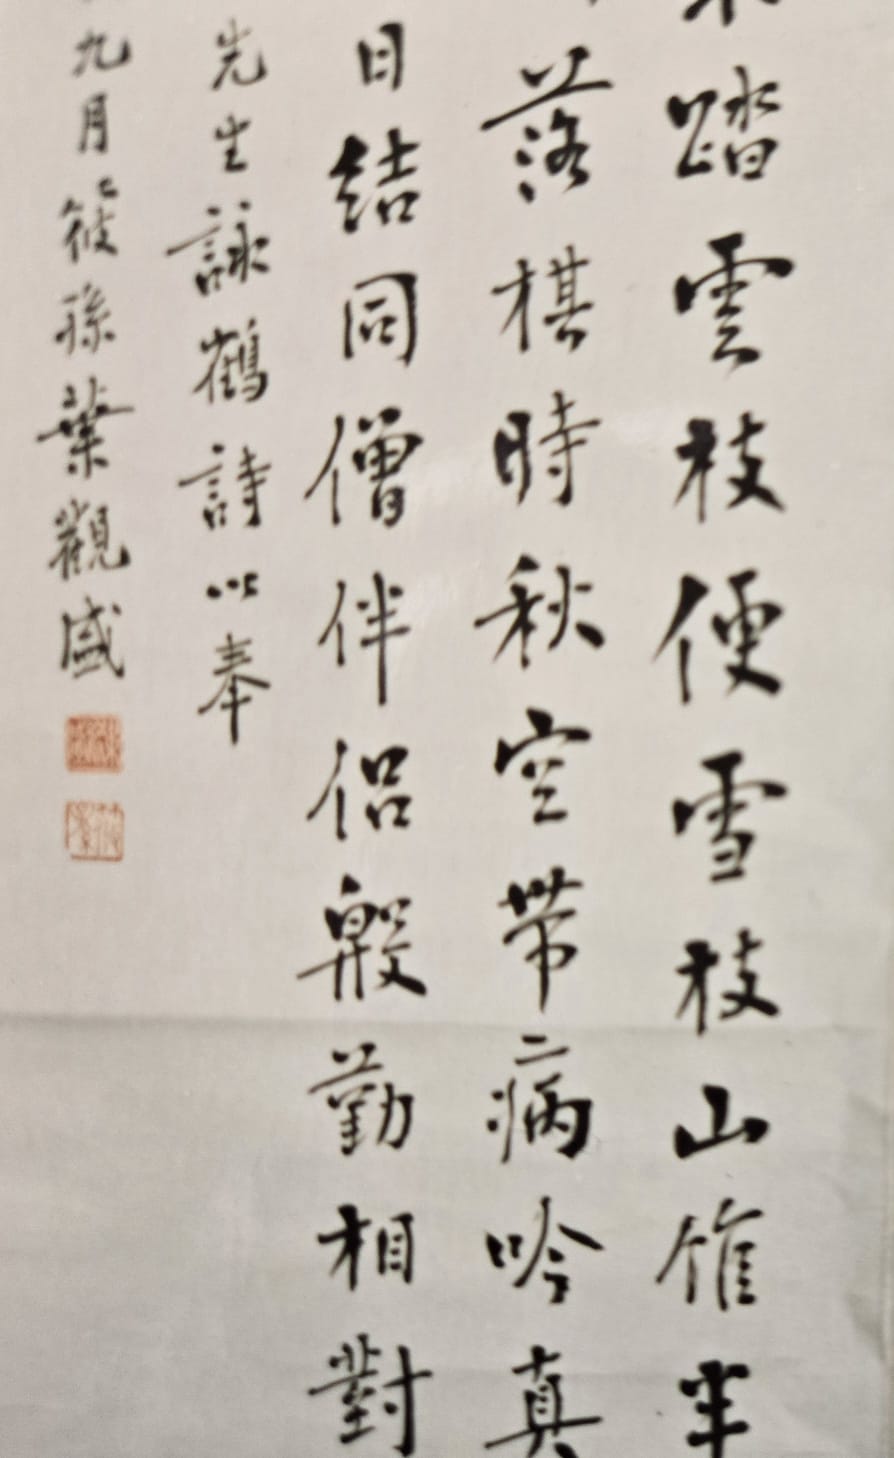 踏雲枝便雪枝山惟半
落棋時秋空帶病吟真
日結同僧伴侶殷勤相對
先生詠鶴詩以奉
九月筱孫葉觀盛